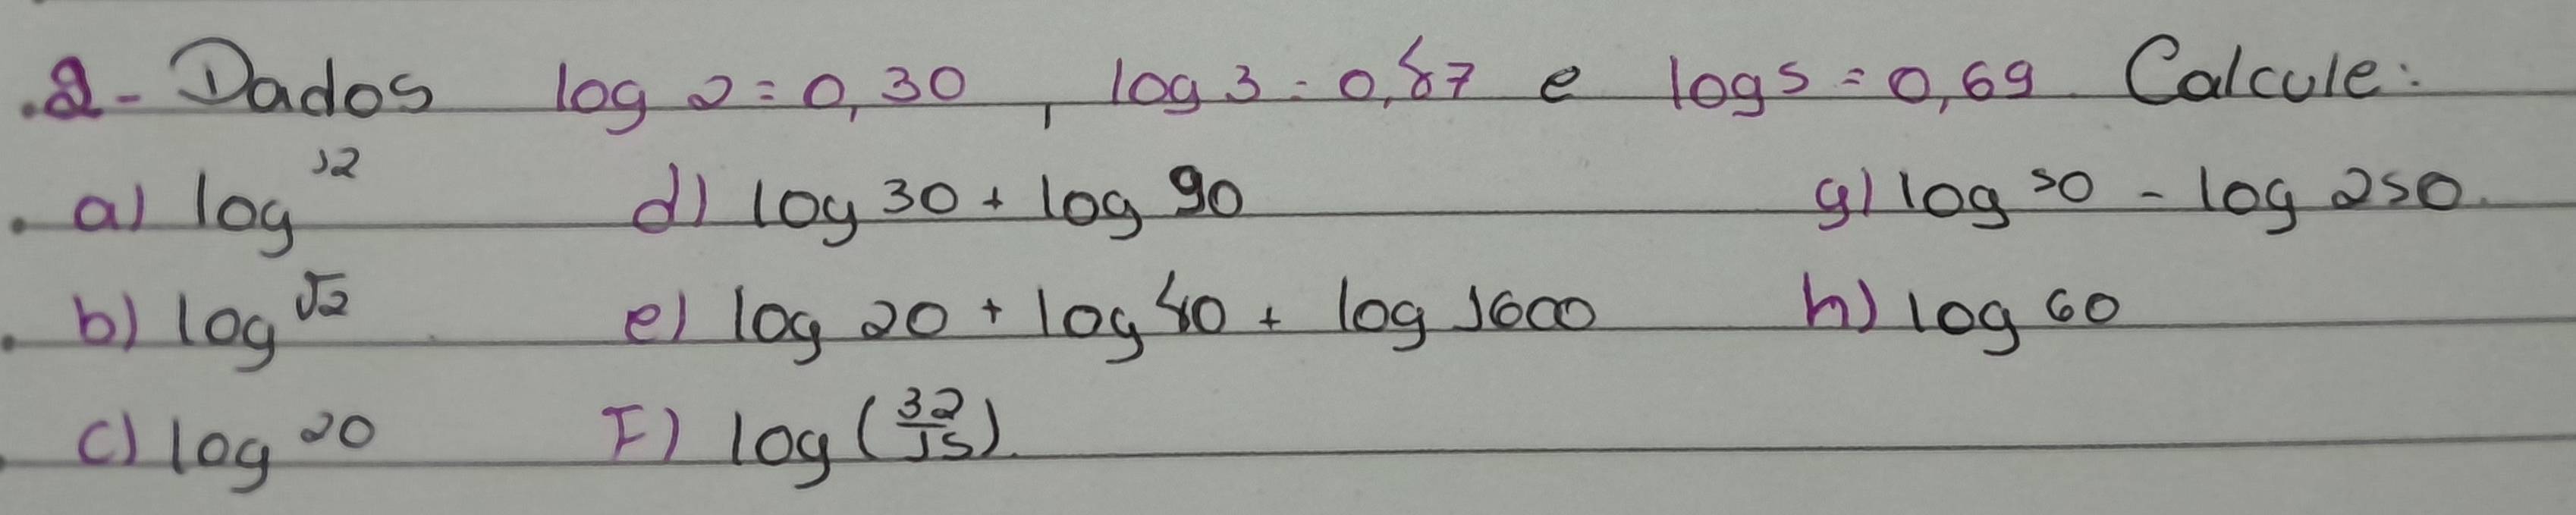 2- Dados log 2 = 0,30, log 3 = 0,47 e log 5 = 0,69. Calcule:
a) log 12 d) log 30 + log 90 g) log 50 - log 250.
b) log √2 e) log 20 + log 40 + log 1600 h) log 60
c) log 20 F) log (32/15).